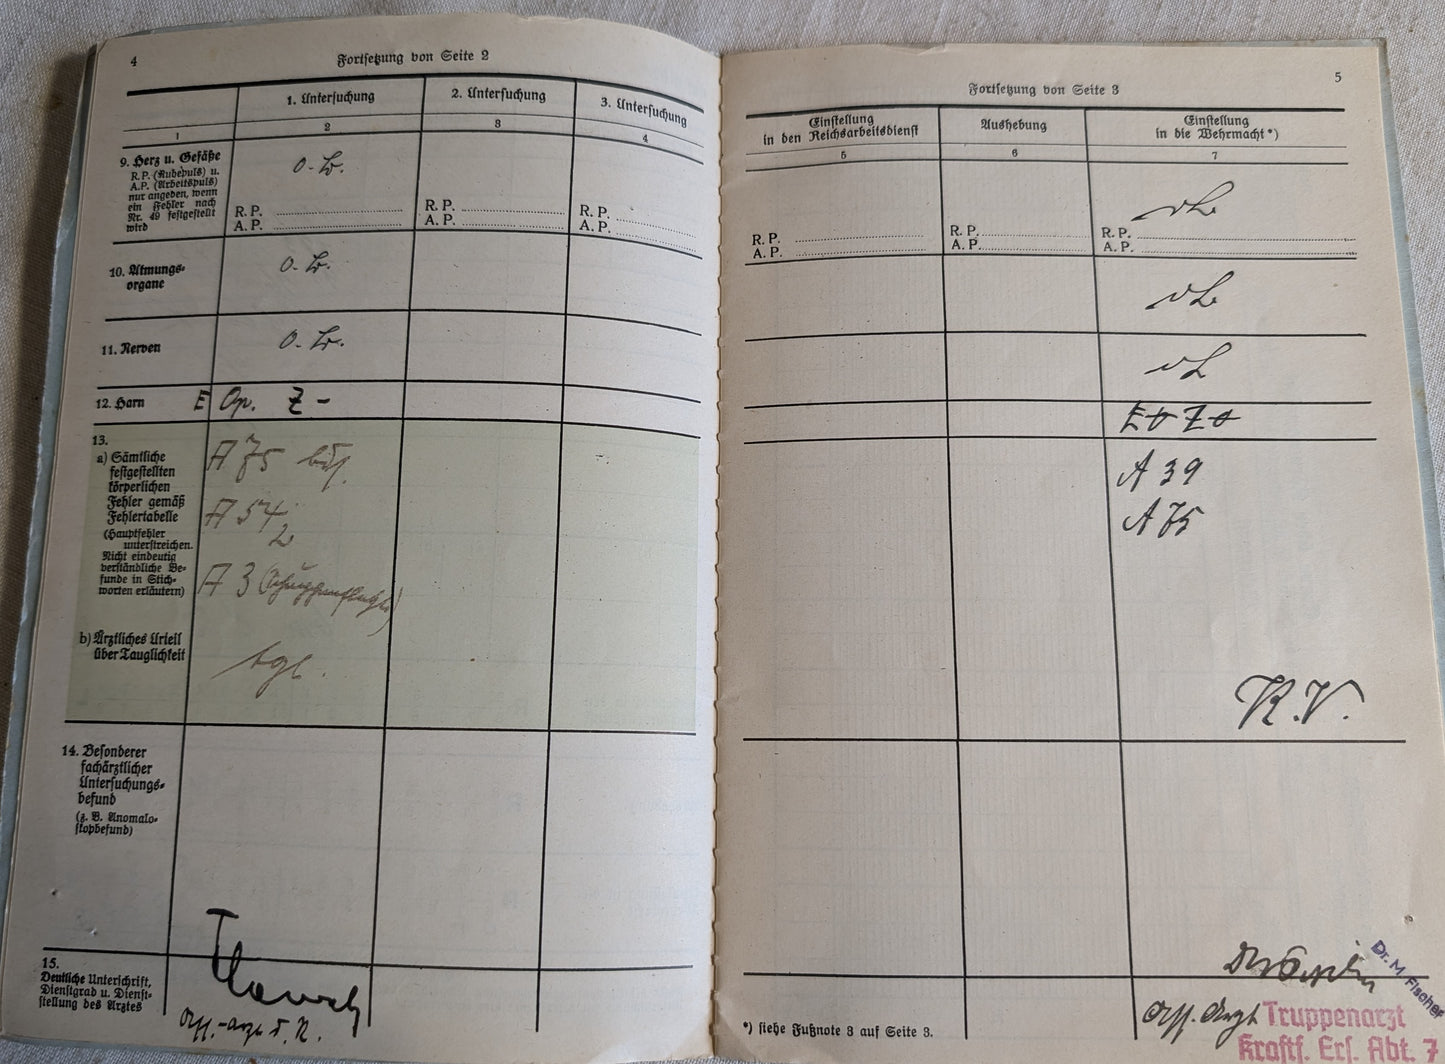 4
Fortsetzung von Seite 2
1. Untersuchung
2. Untersuchung
3. Untersuchung
1
2
3
4
9. Herz u. Gefäße
R.P. (Ruhepuls) u.
A.P. (Arbeitspuls)
nur angeben, wenn
ein Fehler nach
Nr. 49 festgestellt
wird
o. B.
R.P.
A.P.
R.P.
A.P.
R.P.
A.P.
10. Atmungs-
organe
o. B.
11. Nerven
o. B.
12. Harn
E Op. Z –
13.
a) Sämtliche
festgestellten
körperlichen
Fehler gemäß
Fehlertabelle
(Hauptfehler
unterstreichen.
Nicht eindeutig
verständliche Be-
funde in Stich-
worten erläutern)
A 75
A 54
2
A 3 (Schuppenflechte)
b) Ärztliches Urteil
über Tauglichkeit
tgl.
14. Besonderer
fachärztlicher
Untersuchungs-
befund
(z. B. Anomalo-
skopbefund)
15.
Deutliche Unterschrift,
Dienstgrad u. Dienst-
stellung des Arztes
5
Fortsetzung von Seite 3
Einstellung
in den Reichsarbeitsdienst
Aushebung
Einstellung
in die Wehrmacht*)
5
6
7
R.P.
A.P.
R.P.
A.P.
oB
R.P.
A.P.
oB
oB
E 0 Z 0
A 39
A 75
K.V.
Dr. M Fischer
Ass. Arzt
Truppenarzt
Kraftf. Ers. Abt. 7
*) siehe Fußnote 3 auf Seite 3.